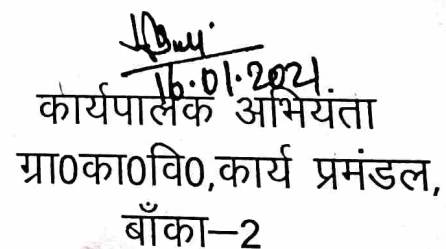 16.01.2021.
कार्यपालक अभियंता
ग्रा0का0वि0,कार्य प्रमंडल,
बाँका-2